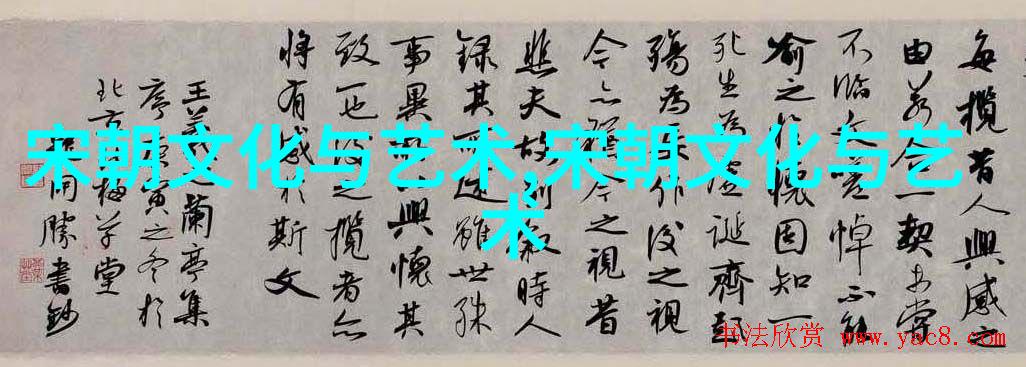 每攬昔人興感之
由若合一契未嘗
不臨文嗟悼不能
喻之於懷固知一
死生為虛誕齊彭
殤為妄作後之視
今亦猶今之視昔
悲夫故列敘時人
錄其所述雖世殊
事異所以興懷其
致一也後之攬者亦
將有感於斯文
王羲之蘭亭集
序庚寅之冬於
北京草堂
周勝書鈔
宋朝文化与艺术,宋朝文化与艺
术
书法欣赏 www.yac8.com